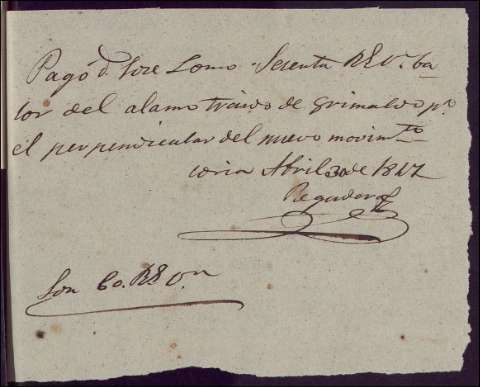 Pagó d. Jose Lomo Sesenta R.s V.n ba
lor del alamo traido de Grimaldo p.a
el perpendicular del nuevo movim.to
Coria Abril 30 de 1847
Regadera
Son 60. R.s V.n